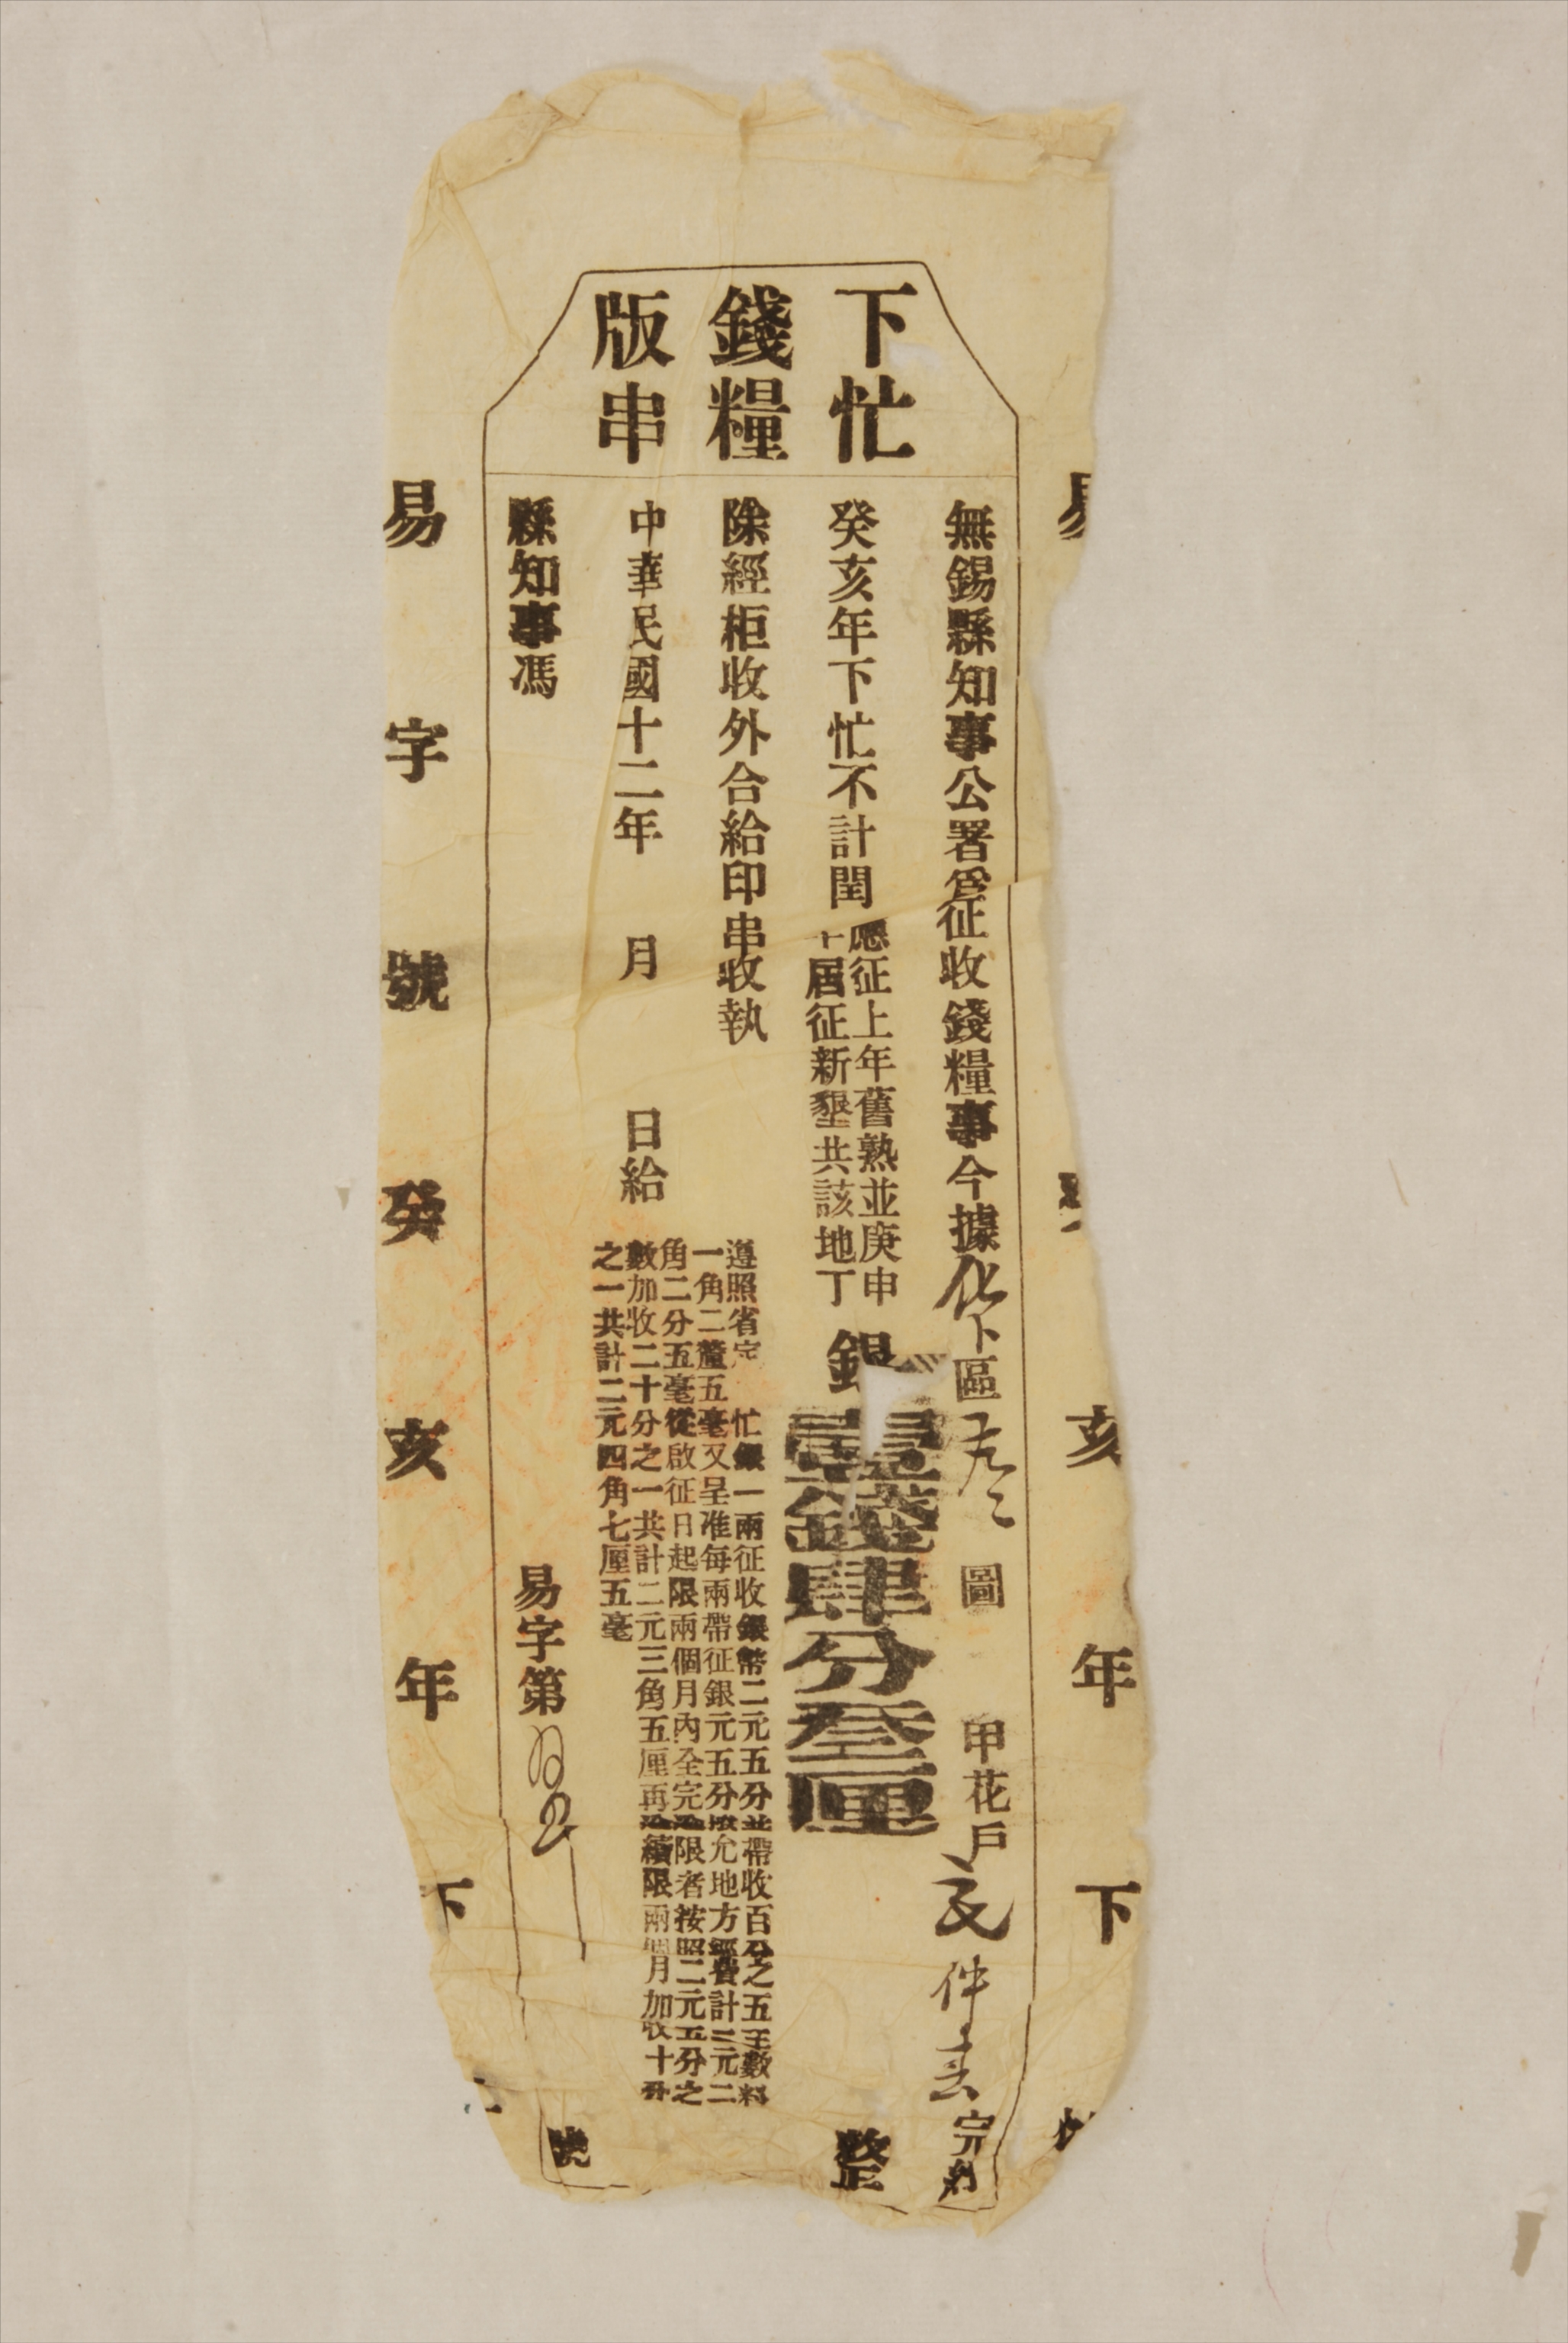 下忙
錢糧
版串
無錫縣知事公署爲征收錢糧事今據化下區 圖 甲花戶 仲 完納
癸亥年下忙不計閏
應征上年舊熟並庚申
十屆征新墾共該地丁
銀壹錢肆分叁厘
整
除經柜收外合給印串收執
遵照省定 忙銀一兩征收銀幣二元五分并帶收百分之五 數料
一角二釐五毫又呈准每兩帶征銀元五分撥允地方經費計二元二
角二分五毫從啟征日起限兩個月內全完逾限者按照二元五分之
數加收二十分之一共計二元三角五厘再逾續限兩個月加收十分
之一共計二元四角七厘五毫
中華民國十二年 月 日給
縣知事馮
易字第 號
易字號癸亥年下
易 癸亥年下忙